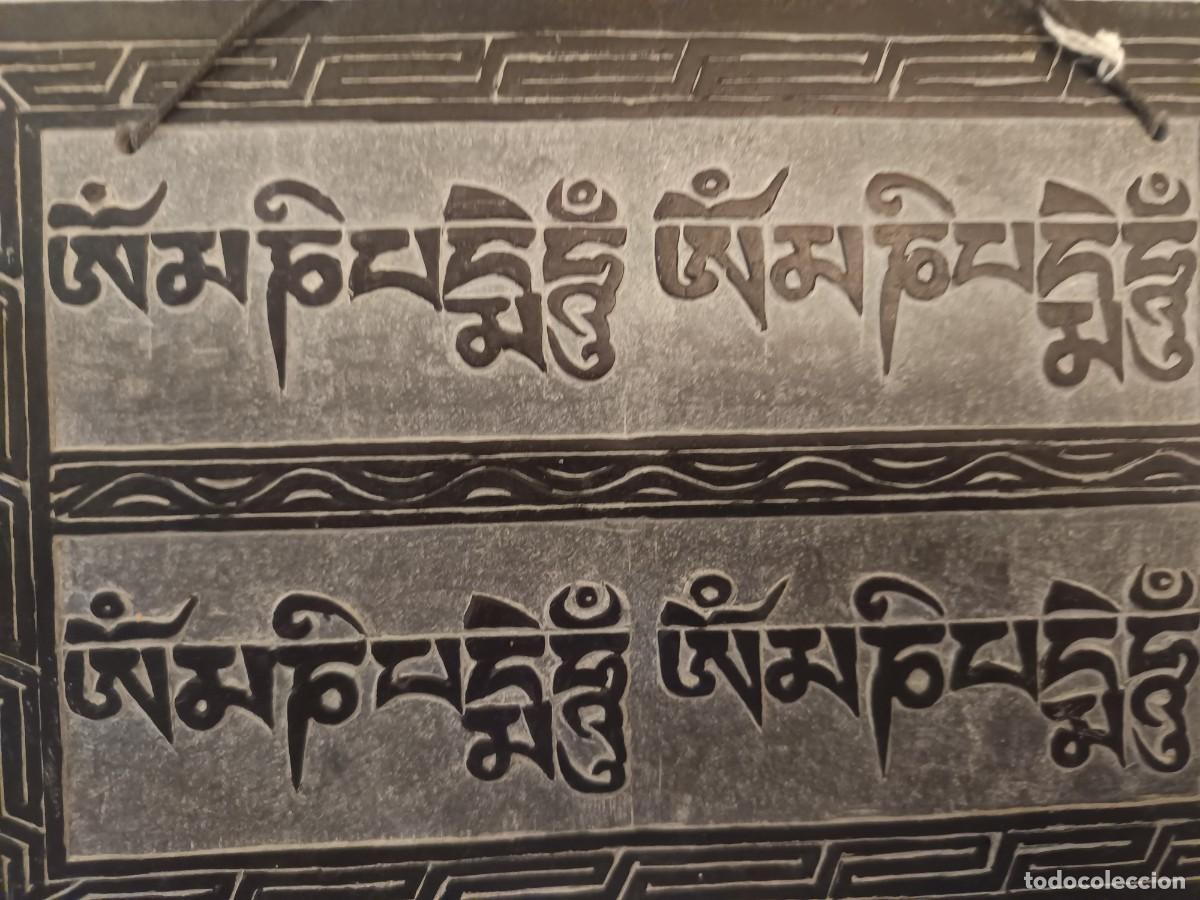 ཨོཾ་མ་ཎི་པདྨེ་ཧཱུྃ ཨོཾ་མ་ཎི་པདྨེ་ཧཱུྃ
ཨོཾ་མ་ཎི་པདྨེ་ཧཱུྃ ཨོཾ་མ་ཎི་པདྨེ་ཧཱུྃ
todocoleccion